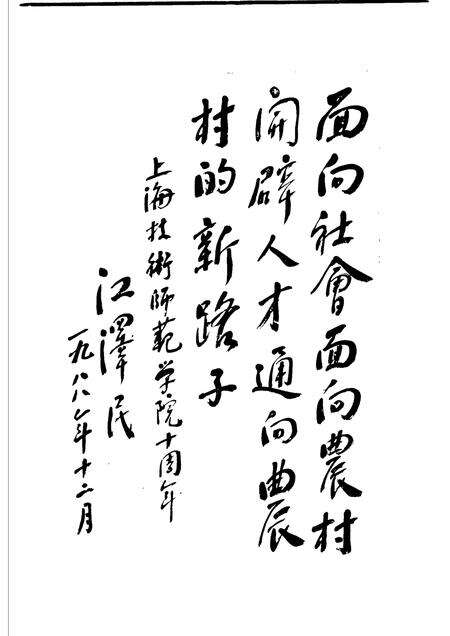 面向社會面向農村
開辟人才通向農
村的新路子
上海技術師范学院十周年
江澤民
一九八八年十二月